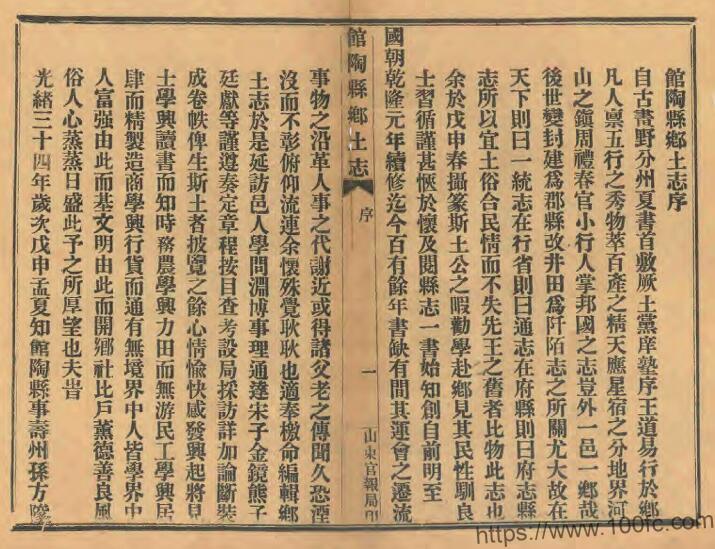 館陶縣鄉土志序
自古畫野分州夏書首敷厥土黨庠塾序王道易行於鄉
凡人禀五行之秀物萃百產之精天應星宿之分地界河
山之鎮周禮春官小行人掌邦國之志豈外一邑一鄉哉
後世變封建爲郡縣改井田爲阡陌志之所關尤大故在
天下則曰一統志在行省則曰通志在府縣則曰府志縣
志所以宜土俗合民情而不失先王之舊者比物此志也
余於戊申春攝篆斯土公之暇勸學赴鄉見其民性馴良
士習循謹甚愜於懷及閱縣志一書始知創自前明至
國朝乾隆元年續修迄今百有餘年書缺有間其運會之遷流
館陶縣鄉土志 序 一 山東官報局印
事物之沿革人事之代謝近或得諸父老之傳聞久恐湮
沒而不彰俯仰流連余懷殊覺耿耿也適奉檄命編輯鄉
土志於是延訪邑人學問淵博事理通達宋子金鏡熊子
廷獻等謹遵奏定章程按目查考設局採訪詳加論斷裝
成卷帙俾生斯土者披覽之餘心情愉快感發興起將見
士學興讀書而知時務農學興力田而無游民工學興居
肆而精製造商學興行貨而通有無境界中人皆學界中
人富強由此而基文明由此而開鄉社比戶薰德善良風
俗人心蒸蒸日盛此予之所厚望也夫旹
光緒三十四年歲次戊申孟夏知館陶縣事壽州孫方
https://www.100fc.com